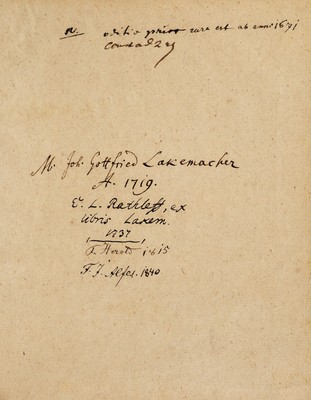 N. editio prior rara est ab anno 1671
M. Joh. Gottfried Lakemacher
A. 1719.
E. L. Rathleff, ex
libris Lakem.
1737
Herold 1815
F. J. Alfes. 1840